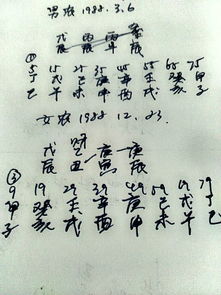 男农 1988.3.6
戊 丙 丙
辰 辰 午 辰
① 5 15 25 35 45 55 65 75
丁 戊 己 庚 辛 壬 癸 甲
巳 午 未 申 酉 戌 亥 子
女农 1988 12.23
戊 乙 庚 庚
辰 丑 寅 辰
③ 9 19 29 39 49 59 69 79
甲 癸 壬 辛 庚 己 戊 丁
子 亥 戌 酉 申 未 午 巳